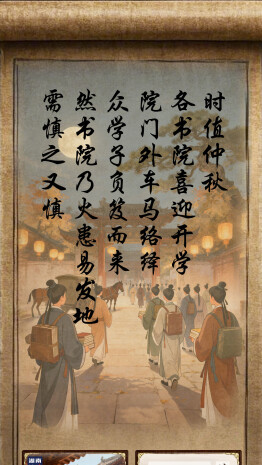 时值仲秋
各书院喜迎开学
院门外车马络绎
众学子负笈而来
然书院乃火患易发地
需慎之又慎
湖南